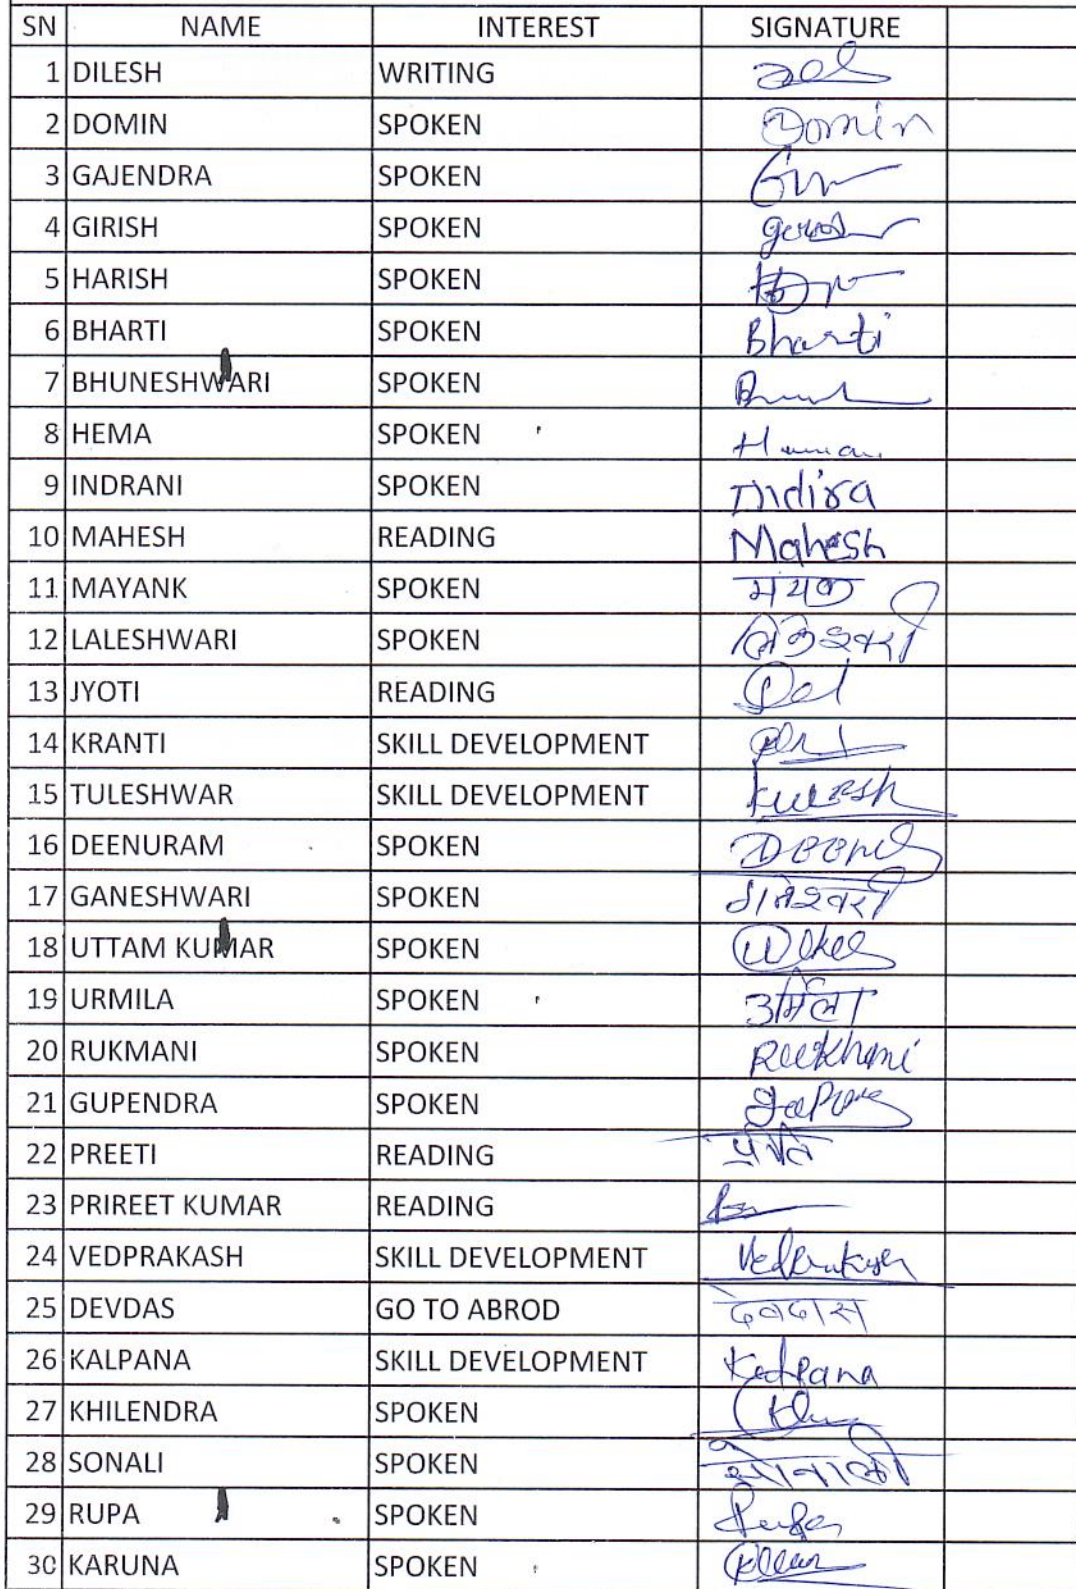 SN NAME INTEREST SIGNATURE
1 DILESH WRITING
2 DOMIN SPOKEN Domin
3 GAJENDRA SPOKEN
4 GIRISH SPOKEN
5 HARISH SPOKEN
6 BHARTI SPOKEN Bharti
7 BHUNESHWARI SPOKEN
8 HEMA SPOKEN
9 INDRANI SPOKEN Indira
10 MAHESH READING Mahesh
11 MAYANK SPOKEN मयंक
12 LALESHWARI SPOKEN
13 JYOTI READING
14 KRANTI SKILL DEVELOPMENT
15 TULESHWAR SKILL DEVELOPMENT
16 DEENURAM SPOKEN
17 GANESHWARI SPOKEN
18 UTTAM KUMAR SPOKEN
19 URMILA SPOKEN उर्मिला
20 RUKMANI SPOKEN
21 GUPENDRA SPOKEN
22 PREETI READING
23 PRIREET KUMAR READING
24 VEDPRAKASH SKILL DEVELOPMENT Vedprakash
25 DEVDAS GO TO ABROD देवदास
26 KALPANA SKILL DEVELOPMENT Kalpana
27 KHILENDRA SPOKEN
28 SONALI SPOKEN सोनाली
29 RUPA SPOKEN
30 KARUNA SPOKEN